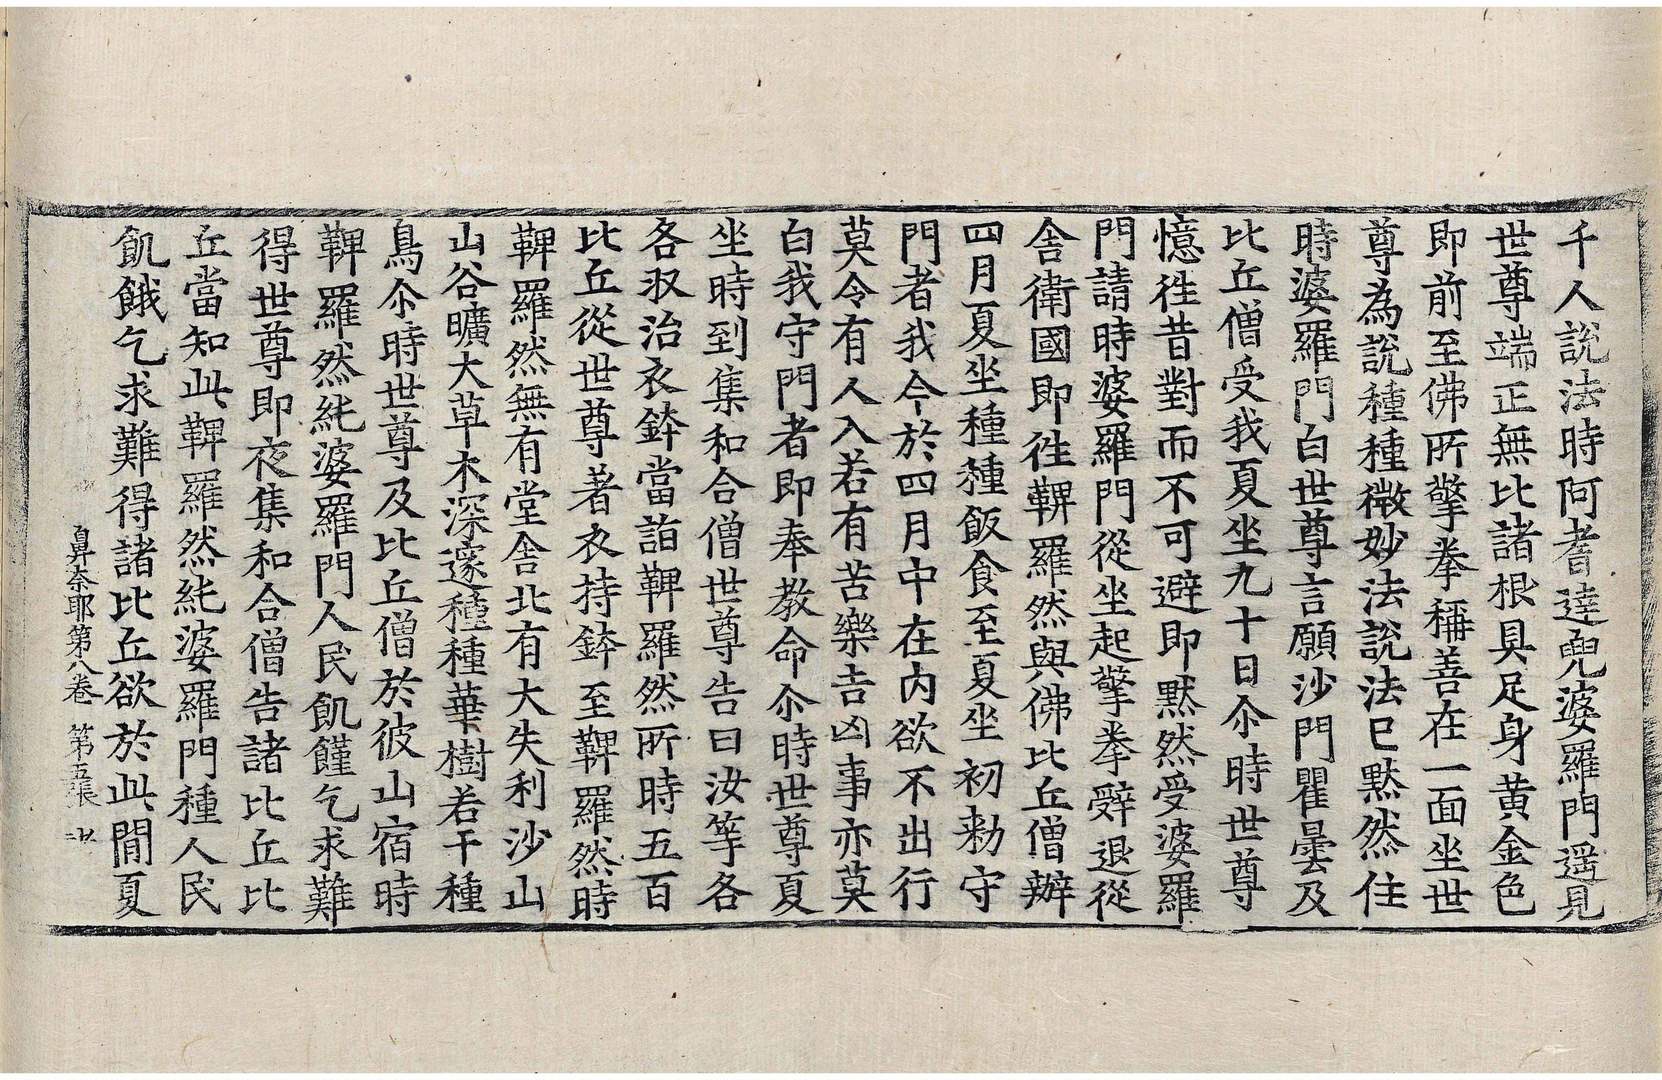 千人說法時阿耆達兜婆羅門遥見
世尊端正無比諸根具足身黄金色
即前至佛所擎拳稱善在一面坐世
尊為說種種微妙法說法已默然住
時婆羅門白世尊言願沙門瞿曇及
比丘僧受我夏坐九十日尒時世尊
憶徃昔對而不可避即默然受婆羅
門請時婆羅門從坐起擎拳辤退從
舍衛國即徃鞞羅然與佛比丘僧辦
四月夏坐種種飯食至夏坐初勑守
門者我今於四月中在内欲不出行
莫令有人入若有苦樂吉凶事亦莫
白我守門者即奉教命尒時世尊夏
坐時到集和合僧世尊告曰汝等各
各収治衣鉢當詣鞞羅然所時五百
比丘從世尊著衣持鉢至鞞羅然時
鞞羅然無有堂舍北有大失利沙山
山谷曠大草木深邃種種華樹若干種
鳥尒時世尊及比丘僧於彼山宿時
鞞羅然㲲婆羅門人民飢饉乞求難
得世尊即夜集和合僧告諸比丘比
丘當知此鞞羅然㲲婆羅門種人民
飢餓乞求難得諸比丘欲於此間夏
鼻奈耶第八卷 第五張 北